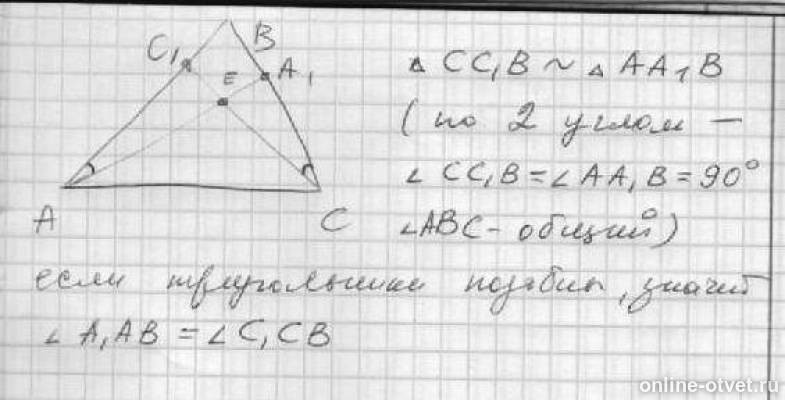 C₁ B
E A₁
A C
△ CC₁B ~ △ AA₁B
(по 2 углам —
∠ CC₁B = ∠ AA₁B = 90°
∠ABC - общий)
если треугольники подобны, значит
∠ A₁AB = ∠ C₁CB
online-otvet.ru